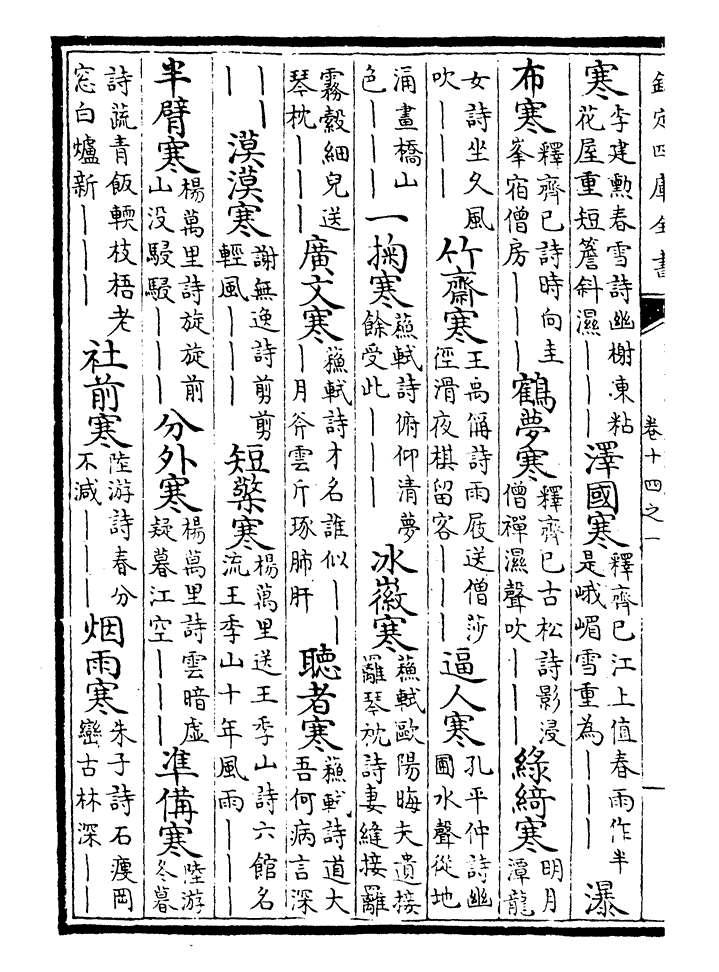 欽定四庫全書　卷十四之一　一
寒李建勲春雪詩幽榭凍粘花屋重短簷斜濕｜｜｜澤國寒釋齊已江上值春雨作半是峨嵋雪重為｜｜｜瀑
布寒釋齊已詩時向圭峯宿僧房｜｜｜鶴夢寒釋齊已古松詩影浸僧禪濕聲吹｜｜｜綠綺寒明月潭龍
女詩坐久風吹｜｜｜竹齋寒王禹偁詩雨屐送僧莎徑滑夜棋留客｜｜｜逼人寒孔平仲詩幽圃水聲從地
涌畫橋山色｜｜｜一掬寒蘓軾詩俯仰清夢餘受此｜｜｜冰徽寒蘓軾歐陽晦夫遺接䍦琴枕詩妻縫接䍦
霧縠細兒送琴枕｜｜｜廣文寒蘓軾詩才名誰似｜｜｜月斧雲斤琢肺肝聽者寒蘓軾詩道大吾何病言深
｜｜｜｜漠漠寒謝無逸詩剪剪輕風｜｜｜短檠寒楊萬里送王季山詩六館名流王季山十年風雨｜｜｜
半臂寒楊萬里詩旋旋前山没駸駸｜｜｜分外寒楊萬里詩雲暗虚疑暮江空｜｜｜準備寒陸游冬暮
詩蔬青飯輭枝梧老窓白爐新｜｜｜社前寒陸游詩春分不减｜｜｜烟雨寒朱子詩石瘦岡巒古林深｜｜